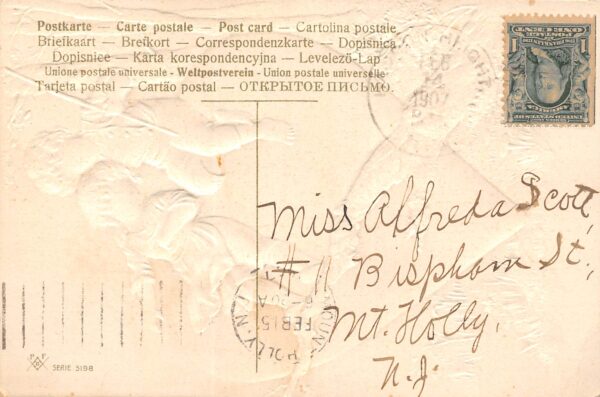 Postkarte — Carte postale — Post card — Cartolina postale
Briefkaart — Brefkort — Correspondenzkarte — Dopisnica
Dopisnice — Karta korespondencyjna — Levelező-Lap
Unione postale universale - Weltpostverein - Union postale universelle
Tarjeta postal — Cartão postal — ОТКРЫТОЕ ПИСЬМО.
FEB
14
1907
POSTAGE
ONE CENT
1 1
Miss Alfreda Scott,
# 11 Bispham St,
Mt. Holly,
N.J.
MOUNT HOLLY, N.J.
FEB 15
SERIE 5198